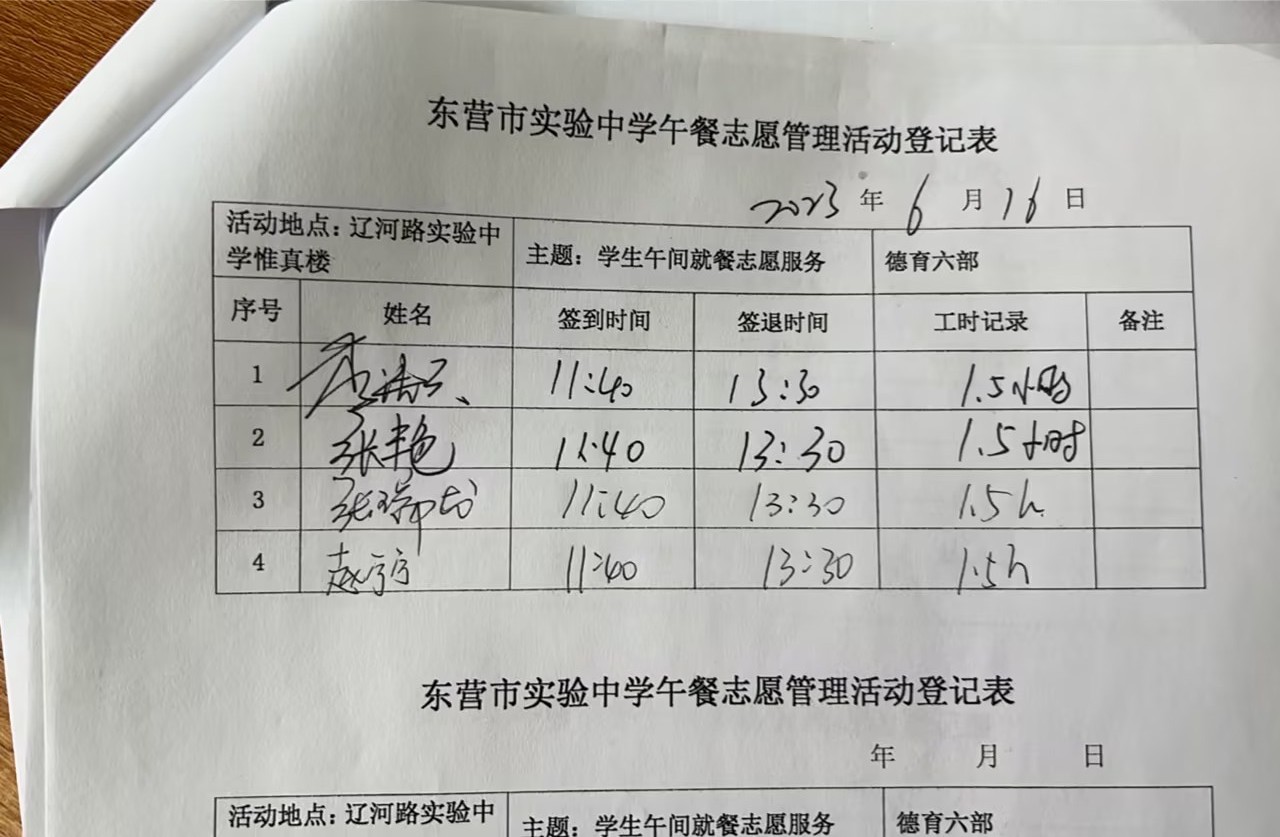 东营市实验中学午餐志愿管理活动登记表
2023 年 6 月 16 日
活动地点：辽河路实验中学惟真楼 主题：学生午间就餐志愿服务 德育六部
序号 姓名 签到时间 签退时间 工时记录 备注
1 11:40 13:30 1.5小时
2 张艳 11:40 13:30 1.5小时
3 张 11:40 13:30 1.5h
4 赵 11:40 13:30 1.5h
东营市实验中学午餐志愿管理活动登记表
年 月 日
活动地点：辽河路实验中 主题：学生午间就餐志愿服务 德育六部